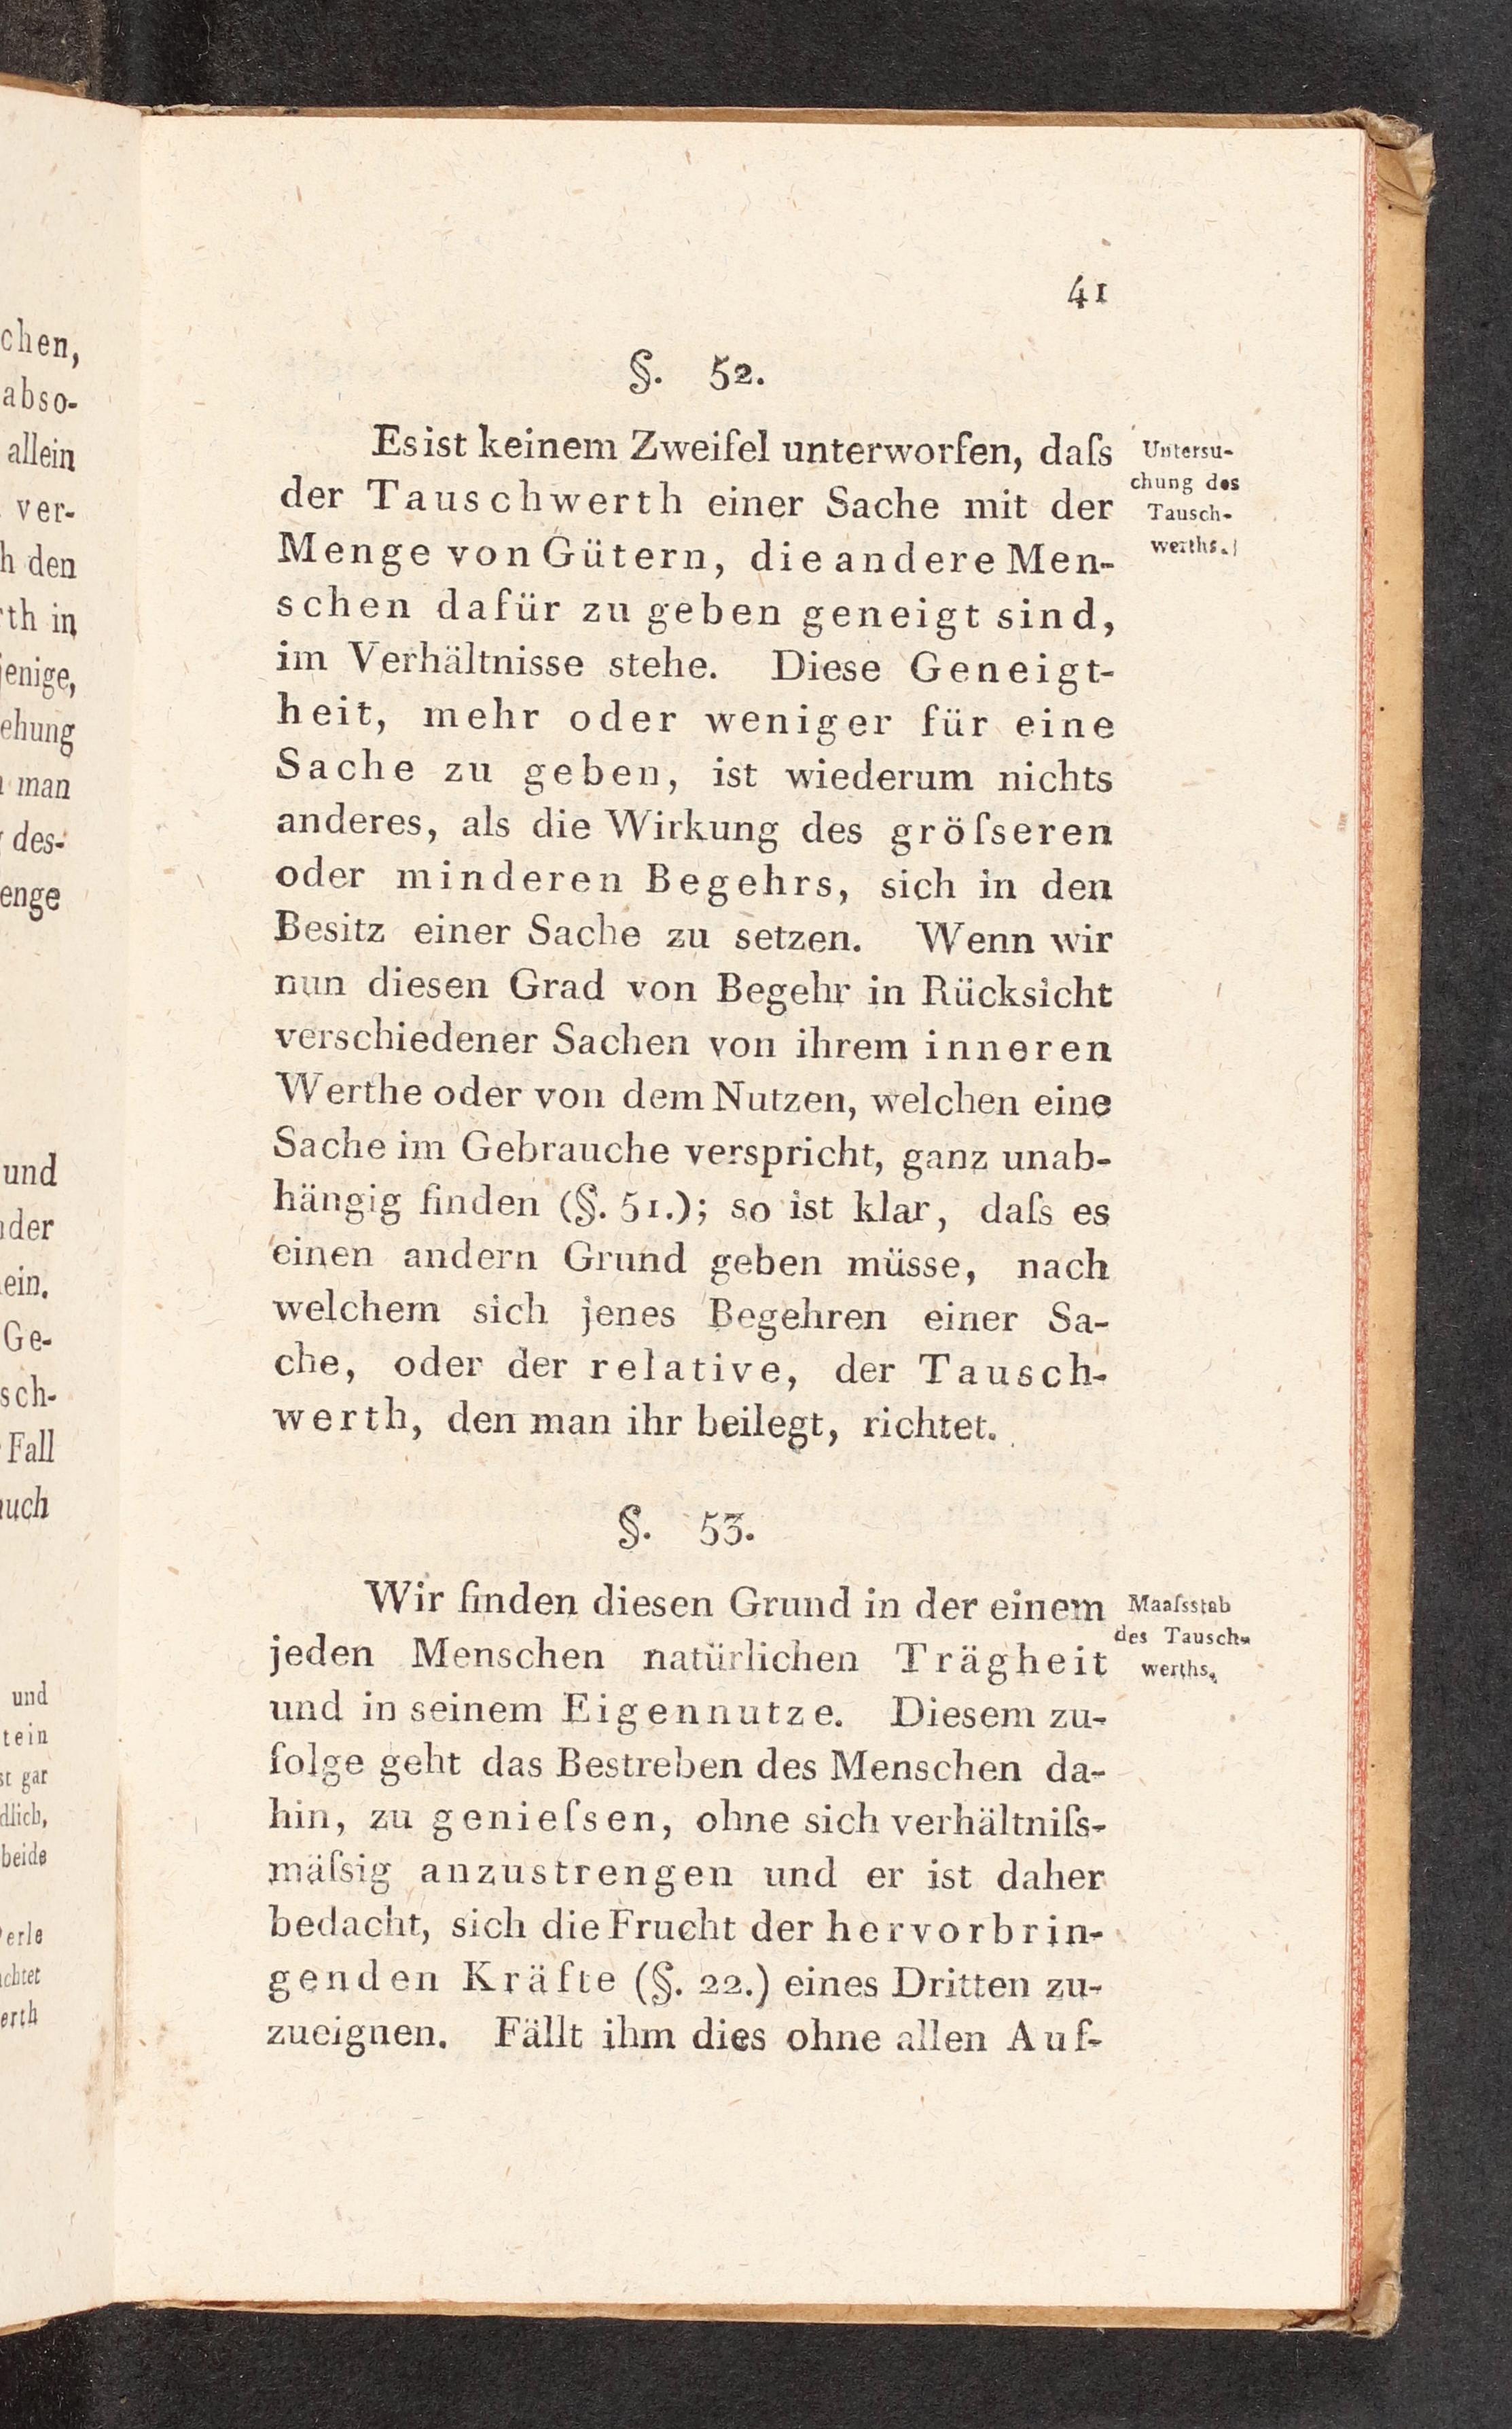 chen,
abso-
allein
ver-
h den
th in
jenige,
ehung
man
des-
enge
und
der
ein.
Ge-
sch-
Fall
auch
und
tein
st gar
dlich,
beide
erle
achtet
erth
41
§. 52.
Es ist keinem Zweifel unterworfen, daſs
der Tauschwerth einer Sache mit der
Menge von Gütern, die andere Men-
schen dafür zu geben geneigt sind,
im Verhältnisse stehe. Diese Geneigt-
heit, mehr oder weniger für eine
Sache zu geben, ist wiederum nichts
anderes, als die Wirkung des gröſseren
oder minderen Begehrs, sich in den
Besitz einer Sache zu setzen. Wenn wir
nun diesen Grad von Begehr in Rücksicht
verschiedener Sachen von ihrem inneren
Werthe oder von dem Nutzen, welchen eine
Sache im Gebrauche verspricht, ganz unab-
hängig finden (§. 51.); so ist klar, daſs es
einen andern Grund geben müsse, nach
welchem sich jenes Begehren einer Sa-
che, oder der relative, der Tausch-
werth, den man ihr beilegt, richtet.
Untersu-
chung des
Tausch-
werths.
§. 53.
Wir finden diesen Grund in der einem
jeden Menschen natürlichen Trägheit
und in seinem Eigennutze. Diesem zu-
folge geht das Bestreben des Menschen da-
hin, zu genieſsen, ohne sich verhältniſs-
mäſsig anzustrengen und er ist daher
bedacht, sich die Frucht der hervorbrin-
genden Kräfte (§. 22.) eines Dritten zu-
zueignen. Fällt ihm dies ohne allen Auf-
Maaſsstab
des Tausch-
werths.